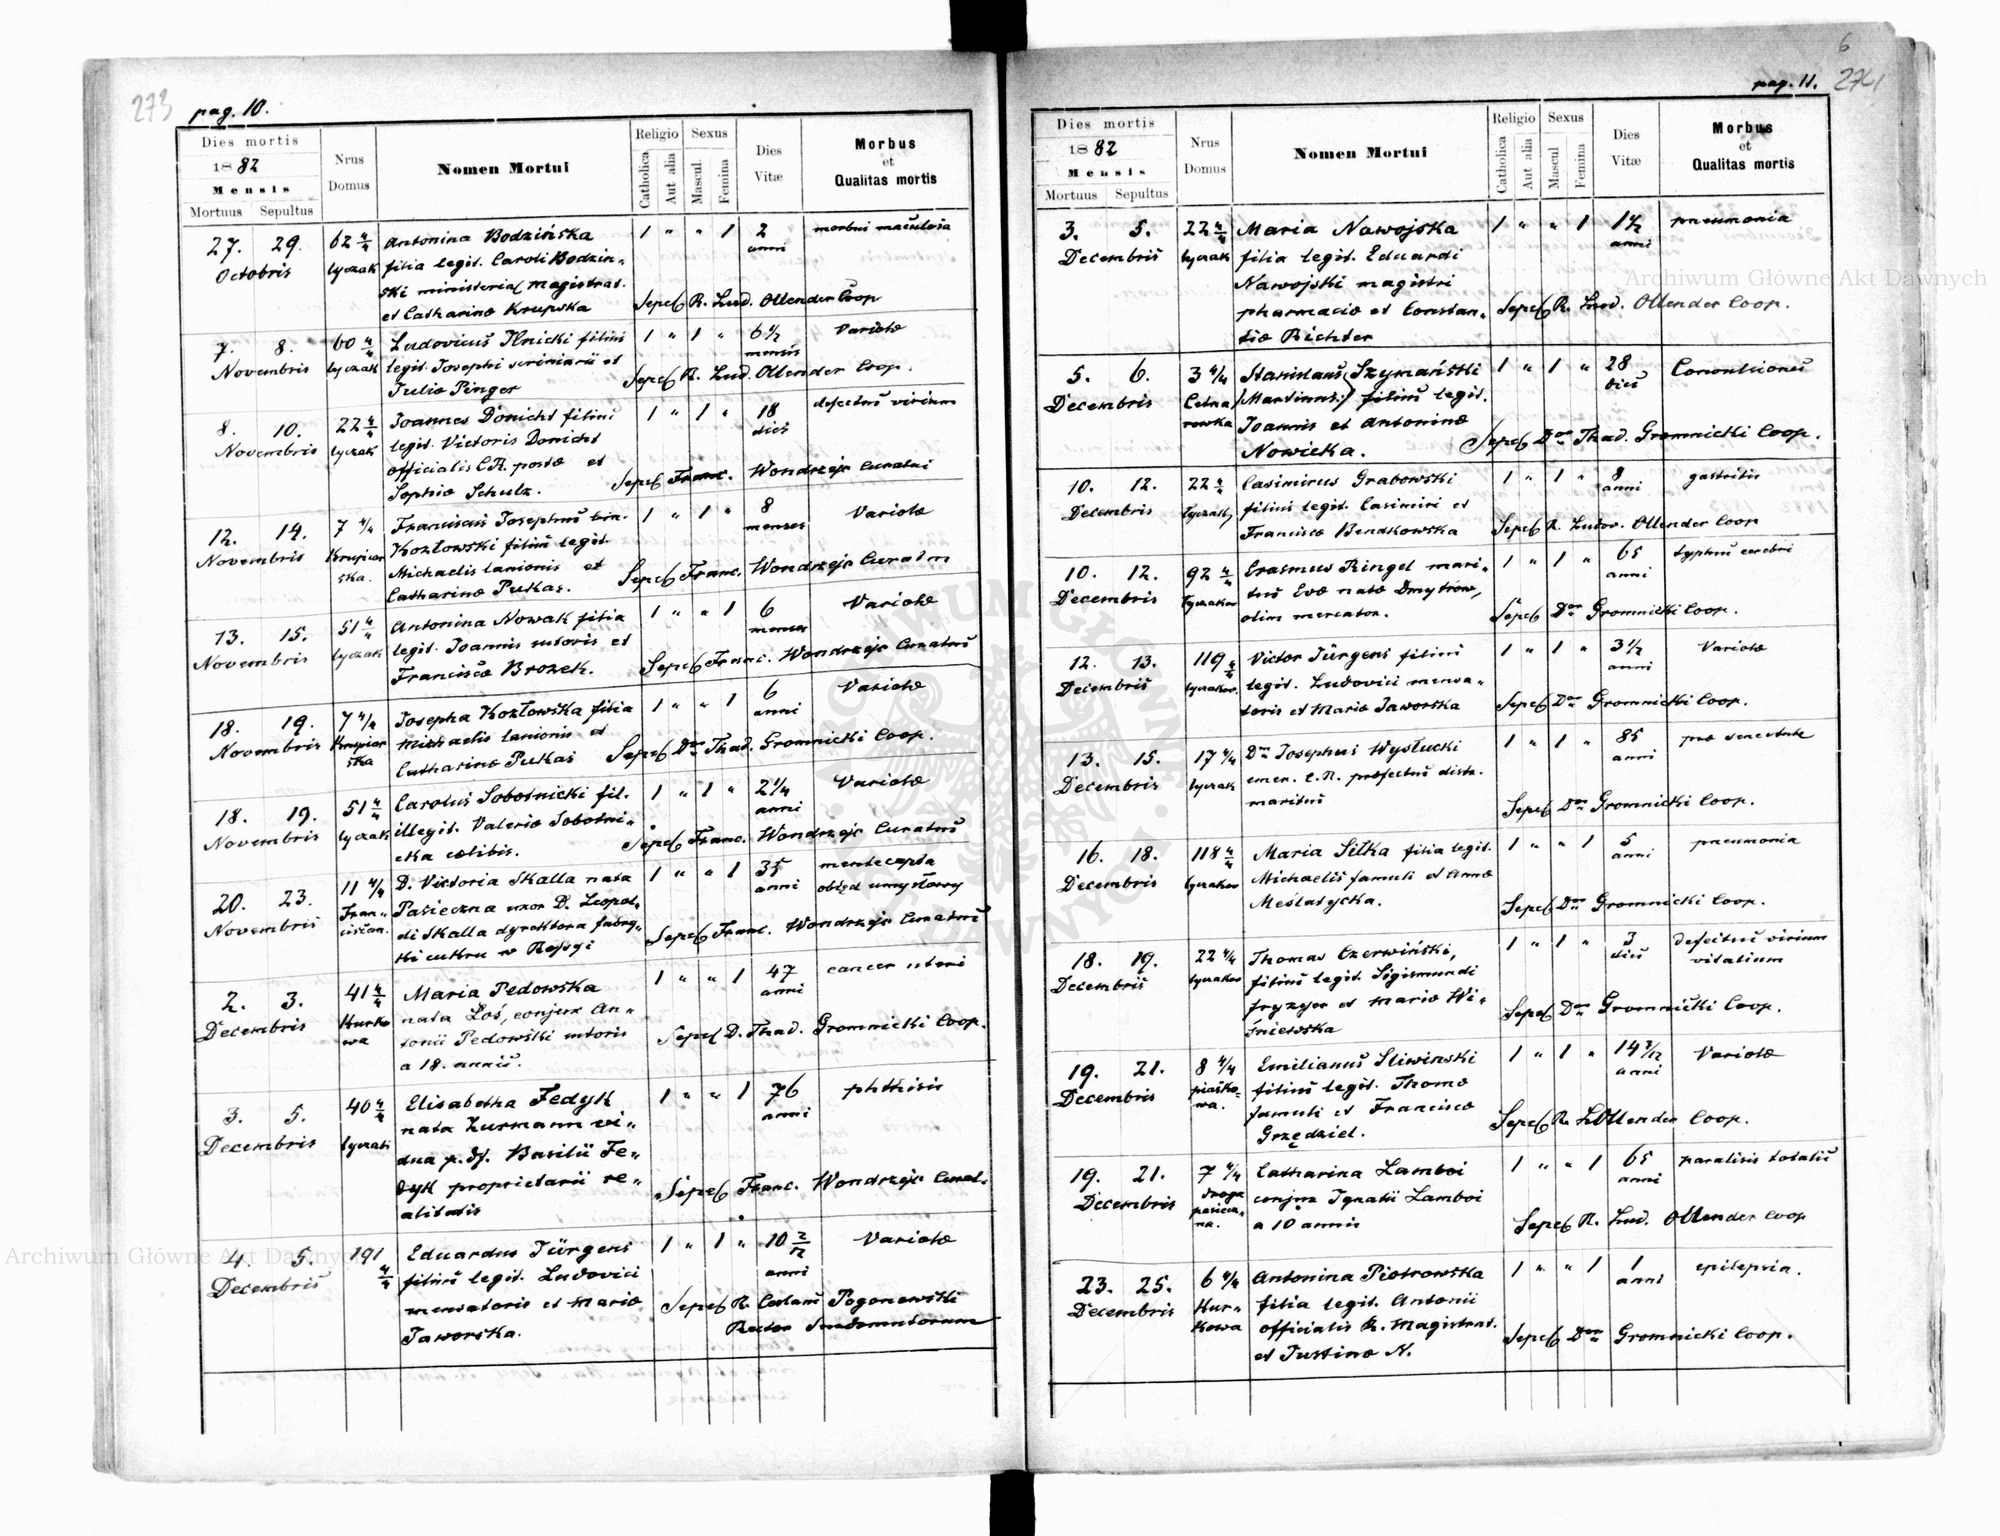 273
pag. 10.
Dies mortis
1882
Mensis
Mortuus Sepultus
Nrus
Domus
Nomen Mortui
Religio
Catholica
Aut alia
Sexus
Mascul.
Femina
Dies
Vitæ
Morbus
et
Qualitas mortis
27. 29. 62 4/4 Antonina Bodzińska 1 " " 1 2 morbui maculosa
Octobris lyczak filia legit. Caroli Bodzin- anni
ski ministerial magistrat.
et Catharinæ Krupska Sepel R. Lud. Ollender Coop
7. 8. 60 4/4 Ludovicus Ilnicki filius 1 " 1 " 6 1/2 Variolæ
Novembris lyczak legit. Josephi scriniarii et mensis
Juliæ Pinger Sepel R. Lud. Ollender Coop.
8. 10. 22 4/4 Joannes Donicht filius 1 " 1 " 18 defectus virium
Novembris lyczak legit. Victoris Donicht dies
officialis C.R. postæ et
Sophiæ Schulz. Sepel Franc. Wondrzejc Curatus
12. 14. 7 4/4 Franciscus Josephus bin. 1 " 1 " 8 Variolæ
Novembris Krupiar Kozłowski filius legit. menses
ska. Michaelis lanionis et
Catharinæ Pukas. Sepel Franc. Wondrzejc Curatus
13. 15. 51 4/4 Antonina Nowak filia 1 " " 1 6 Variolæ
Novembris lyczak legit. Joannis sutoris et menses
Franciscæ Brozek. Sepel Franc. Wondrzejc Curatus
18. 19. 7 4/4 Josepha Kozłowska filia 1 " " 1 6 Variolæ
Novembris Krupiar Michaelis lanionis et anni
ska Catharinæ Pukas Sepel Dnus Thad. Gromnicki Coop.
18. 19. 51 4/4 Carolus Sobotnicki fil. 1 " 1 " 2 1/4 Variolæ
Novembris lyczak illegit. Valeriæ Sobotni- anni
cka cælibis. Sepel Franc. Wondrzejc Curatus
20. 23. 11 4/4 D. Victoria Skalla nata 1 " " 1 35 mente capta
Novembris Fran- Pasieczna uxor D. Leopol- anni obłęd umysłowy
ciscan. di Skalla dyrektora fabry-
ki cukru w Rossyi Sepel Franc. Wondrzejc Curatus
2. 3. 41 4/4 Maria Pedowska 1 " " 1 47 cancer uteri
Decembris Kurko nata Łoś, conjux An- anni
wa tonii Pedowski sutoris
a 18. annis. Sepel D. Thad. Gromnicki Coop.
3. 5. 40 4/4 Elisabetha Fedyk 1 " " 1 76 phthisis
Decembris lyczak nata Zurmann vi- anni
dua p. df. Basilii Fe-
dyk proprietarii re-
alitatis Sepel Franc. Wondrzejc Curat.
4. 5. 191 4/4 Eduardus Jürgens 1 " 1 " 10 2/12 Variolæ
Decembris filius legit. Ludovici anni
mercatoris et Mariæ
Jaworska. Sepel R. Costans Pogonowski
Rector Surdomutorum
6
pag. 11. 274
Dies mortis
1882
Mensis
Mortuus Sepultus
Nrus
Domus
Nomen Mortui
Religio
Catholica
Aut alia
Sexus
Mascul
Femina
Dies
Vitæ
Morbus
et
Qualitas mortis
3. 5. 22 4/4 Maria Nawojska 1 " " 1 1 1/2 pneumonia
Decembris lyczak filia legit. Eduardi anni
Nawojski magistri
pharmaciæ et Constan-
tiæ Richter Sepel R. Lud. Ollender Coop.
5. 6. 3 4/4 Stanislaus Szymański 1 " 1 " 28 Convulsiones
Decembris Cetna Martinus filius legit. dies
rowka Joannis et Antoninæ
Nowicka. Sepel Dnus Thad. Gromnicki Coop.
10. 12. 22 4/4 Casimirus Grabowski 1 " 1 " 8 gastritis
Decembris lyczak filius legit. Casimiri et anni
Franciscæ Bendkowska Sepel R. Ludov. Ollender Coop
10. 12. 92 4/4 Erasmus Ringel mari- 1 " 1 " 65 typhus cerebri
Decembris lyczakov tus Evæ natæ Dmytrow, anni
olim mercator. Sepel Dnus Gromnicki Coop.
12. 13. 119 4/4 Victor Jürgens filius 1 " 1 " 3 1/2 Variolæ
Decembris lyczakov. legit. Ludovici merca- anni
toris et Mariæ Jaworska Sepel Dnus Gromnicki Coop.
13. 15. 17 4/4 Dnus Josephus Wysłucki 1 " 1 " 85 præ senectute
Decembris lyczak emer. C.R. præfectus distr. anni
maritus Sepel Dnus Gromnicki Coop.
16. 18. 118 4/4 Maria Siłka filia legit. 1 " " 1 5 pneumonia
Decembris lyczakov Michaelis famuli et Annæ anni
Meslatycka. Sepel Dnus Gromnicki Coop.
18. 19. 22 4/4 Thomas Czerwiński, 1 " 1 " 3 defectus virium
Decembris lyczakov filius legit. Sigismundi dies vitalium
fryzyer et Mariæ Wi-
śniewska Sepel Dnus Gromnicki Coop.
19. 21. 8 4/4 Emilianus Sliwinski 1 " 1 " 14 3/12 Variolæ
Decembris piasko- filius legit. Thomæ anni
wa. famuli et Franciscæ
Grzędziel. Sepel R. L Ollender Coop.
19. 21. 7 4/4 Catharina Lamboi 1 " " 1 65 paralisis totalis
Decembris droga conjux Ignatii Lamboi anni
pasiecz-
na. a 10 annis Sepel R. Lud. Ollender Coop
23. 25. 6 4/4 Antonina Piotrowska 1 " " 1 1 epilepsia.
Decembris Kur- filia legit. Antonii anni
kowa officialis R. Magistrat.
et Justinæ N. Sepel Dnus Gromnicki Coop.
Archiwum Główne Akt Dawnych
Archiwum Główne Akt Dawnych
ARCHIWUM GŁÓWNE AKT DAWNYCH